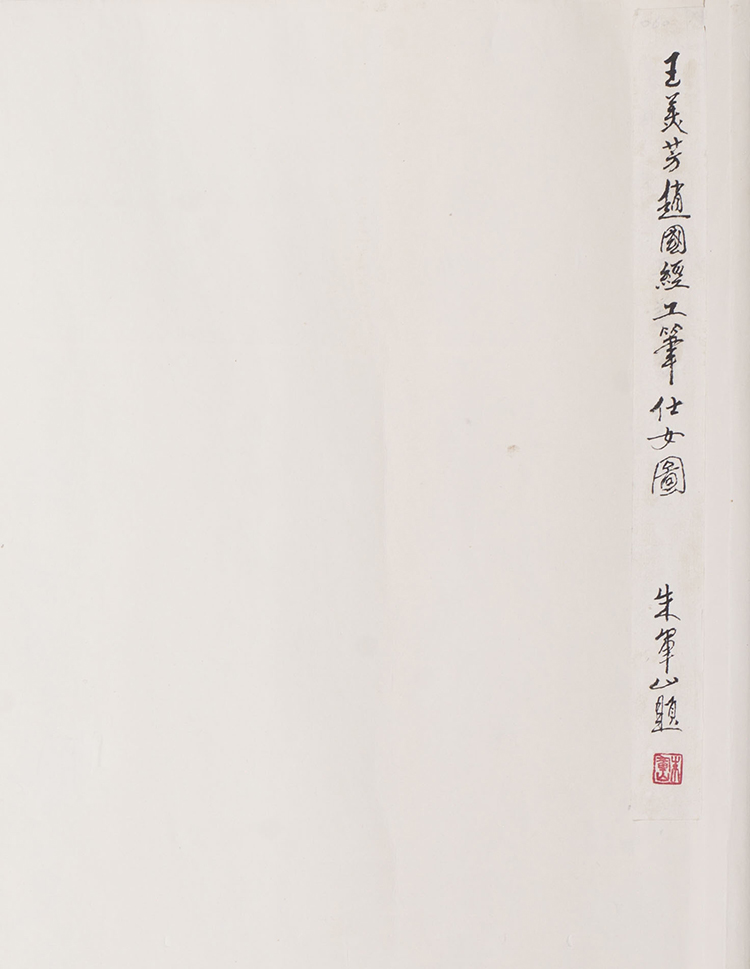 王美芳趙國經工筆仕女圖
朱軍山題